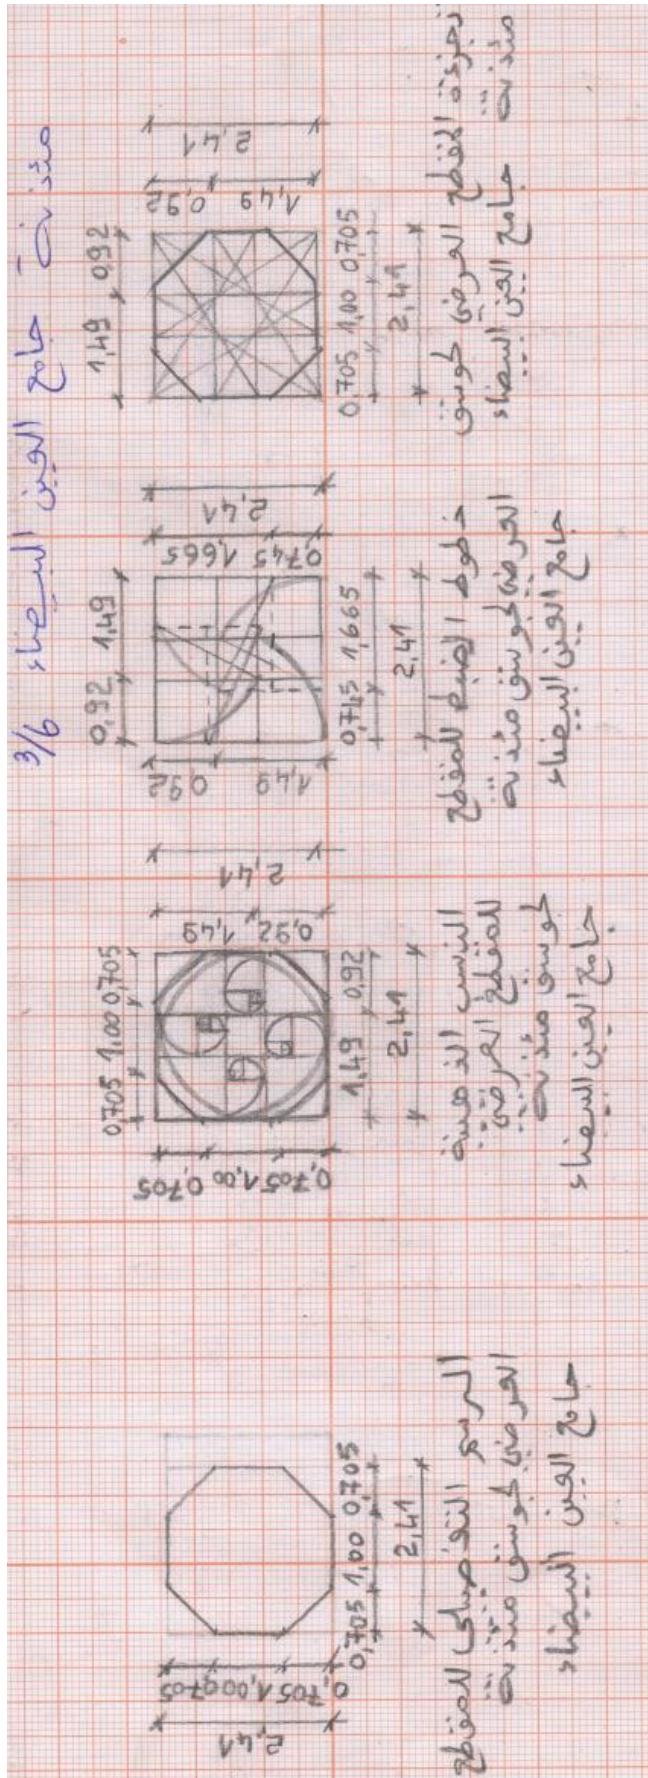 مئذنة جامع العين البيضاء 3/6
1,49 0,92
0,92 1,49
2,41
0,705 1,00 0,705
2,41
تجزئة المقطع العرضي لجوسق
مئذنة جامع العين البيضاء
0,92 1,49
0,92 1,49
1,665 0,745
2,41
0,745 1,665
2,41
خطوط الضبط للمقطع
العرضي لجوسق مئذنة
جامع العين البيضاء
0,705 1,00 0,705
0,705 1,00 0,705
1,49 0,92
2,41
1,49 0,92
2,41
النسب الذهبية
للمقطع العرضي
لجوسق مئذنة
جامع العين البيضاء
0,705 1,00 0,705
2,41
0,705 1,00 0,705
2,41
الرسم التفصيلي للمقطع
العرضي لجوسق مئذنة
جامع العين البيضاء